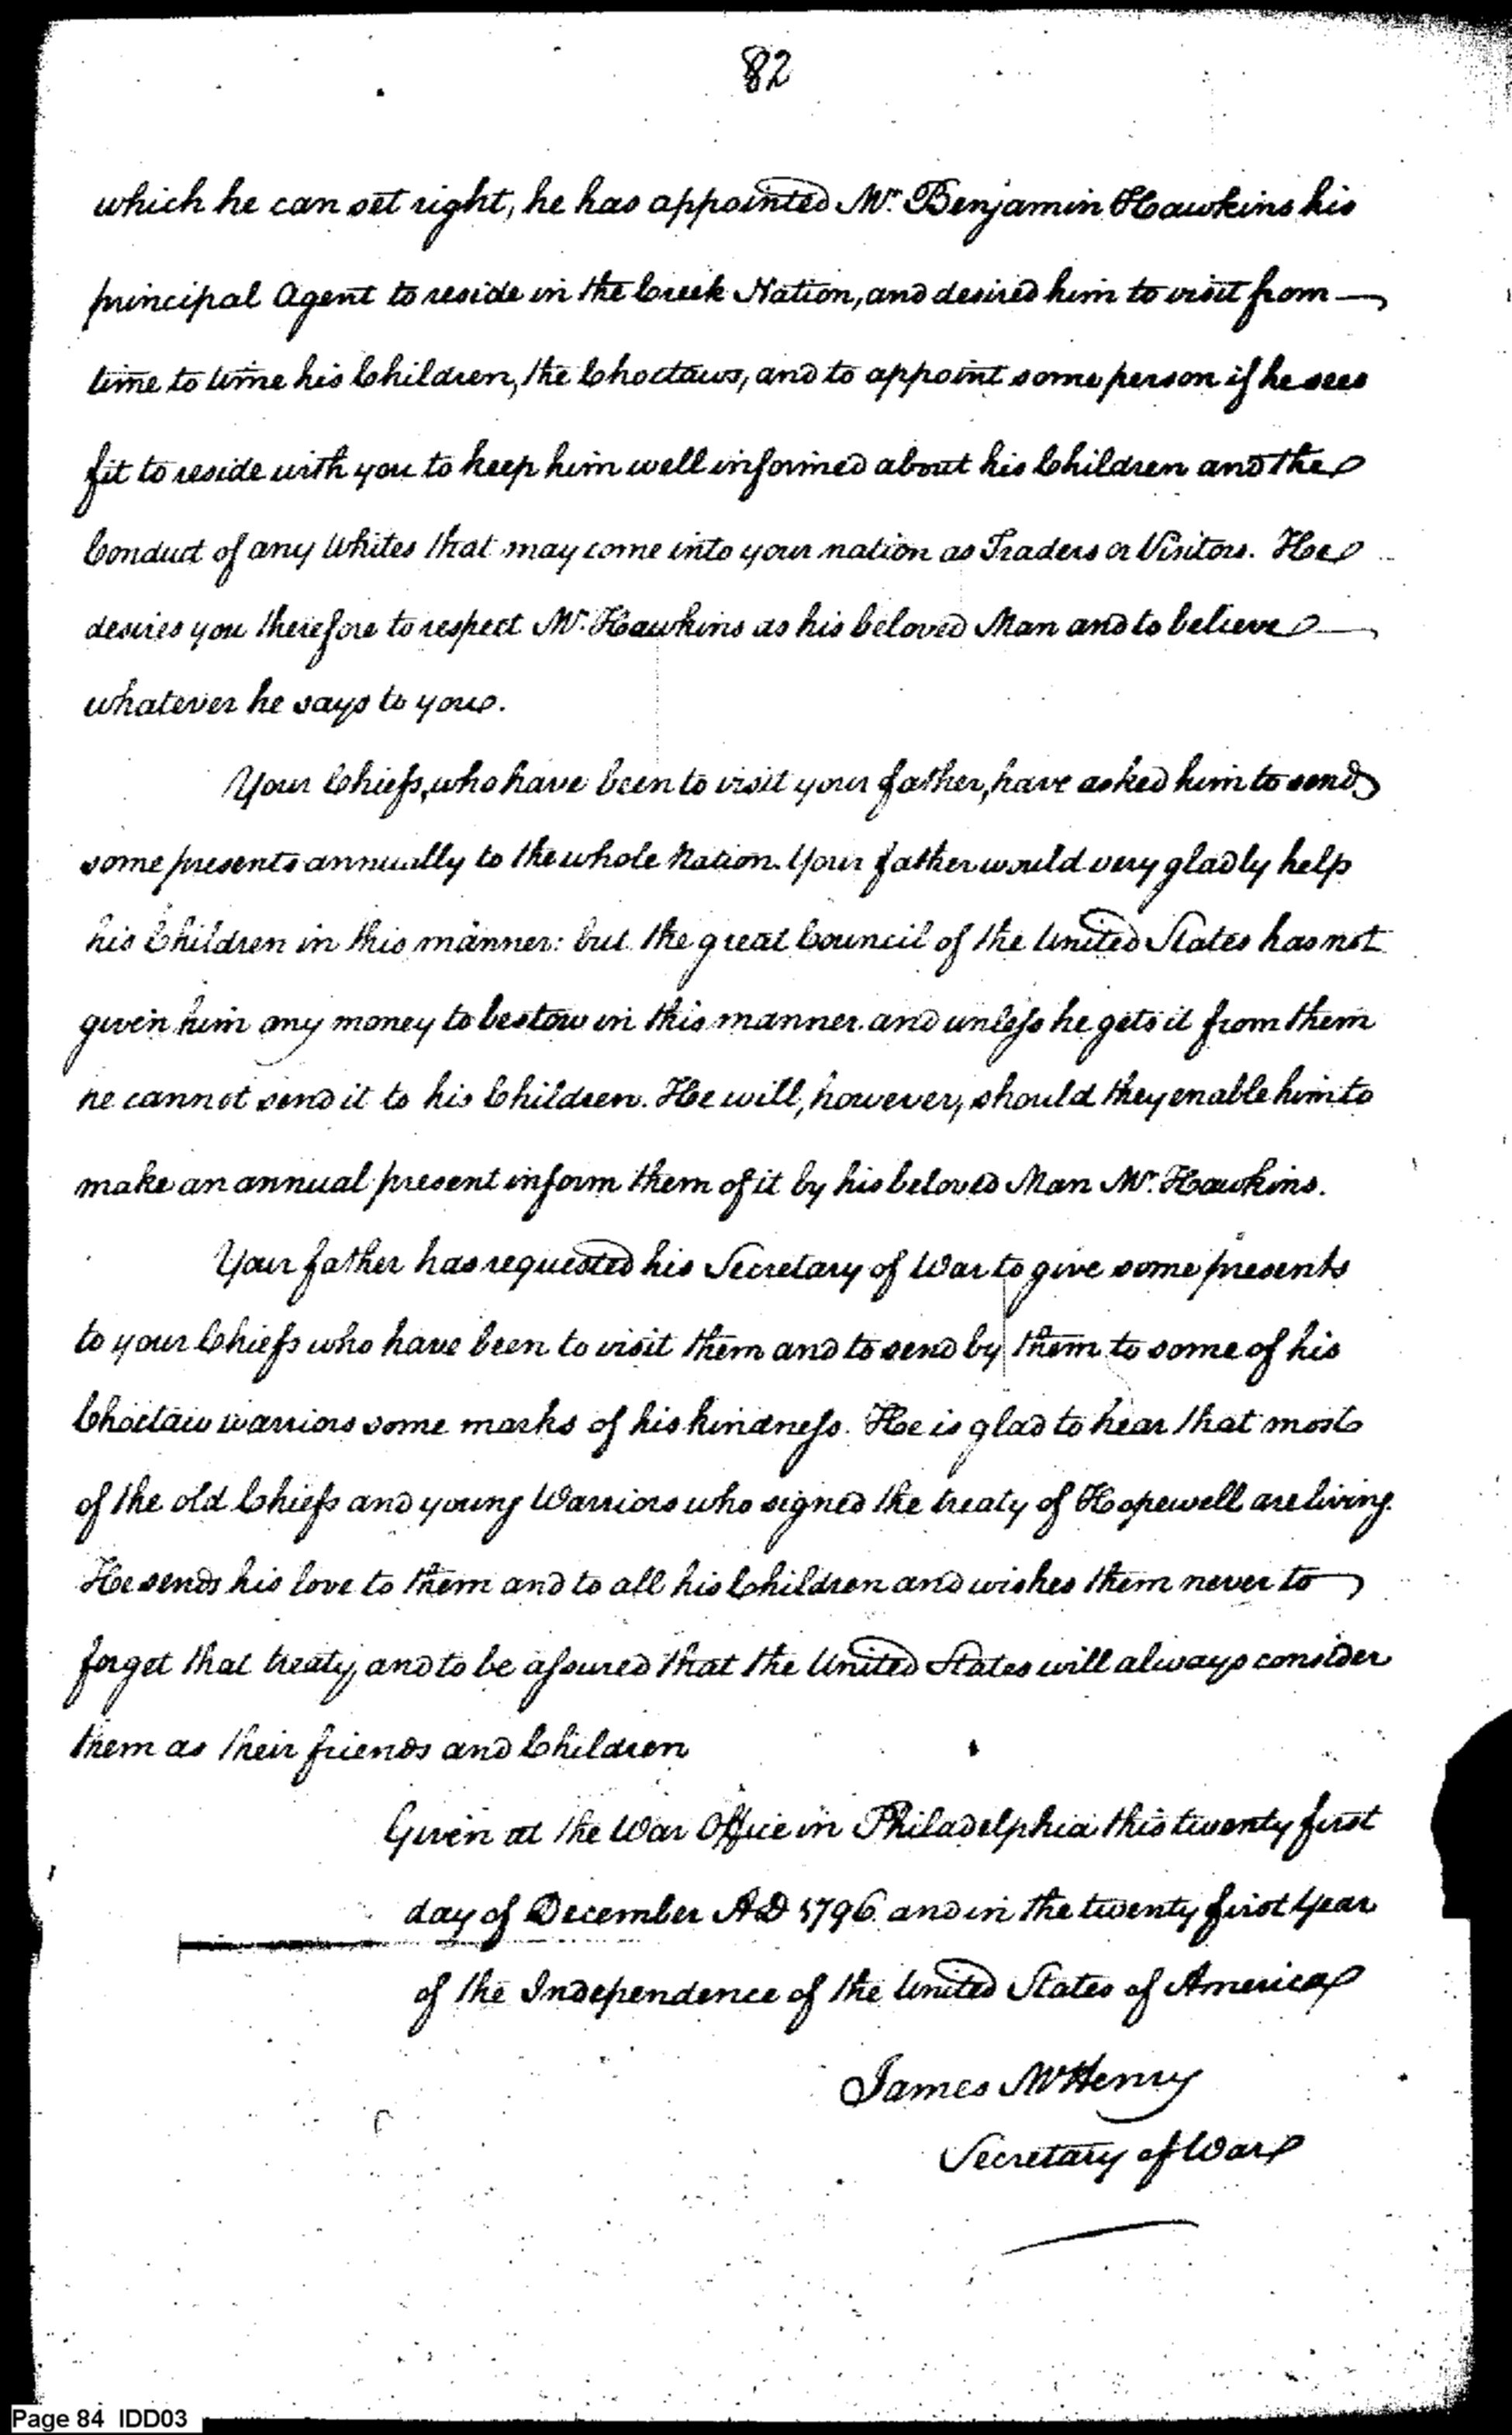 82
which he can set right, he has appointed Mr. Benjamin Hawkins his
principal Agent to reside in the Creek Nation, and desired him to visit from
time to time his Children, the Choctaws, and to appoint some person if he sees
fit to reside with you to keep him well informed about his Children and the
Conduct of any Whites that may come into your nation as Traders or Visitors. He
desires you therefore to respect Mr. Hawkins as his beloved Man and to believe
whatever he says to you.
Your Chiefs, who have been to visit your father, have asked him to send
some presents annually to the whole Nation. Your father would very gladly help
his Children in this manner: but the great Council of the United States has not
given him any money to bestow in this manner and unless he gets it from them
he cannot send it to his Children. He will, however, should they enable him to
make an annual present inform them of it by his beloved Man Mr. Hawkins.
Your father has requested his Secretary of War to give some presents
to your Chiefs who have been to visit them and to send by them to some of his
Choctaw warriors some marks of his kindness. He is glad to hear that most
of the old Chiefs and young Warriors who signed the treaty of Hopewell are living.
He sends his love to them and to all his Children and wishes them never to
forget that treaty, and to be assured that the United States will always consider
them as their friends and Children
Given at the War Office in Philadelphia this twenty first
day of December AD 1796 and in the twenty first Year
of the Independence of the United States of America
James McHenry
Secretary of War
Page 84 IDD03